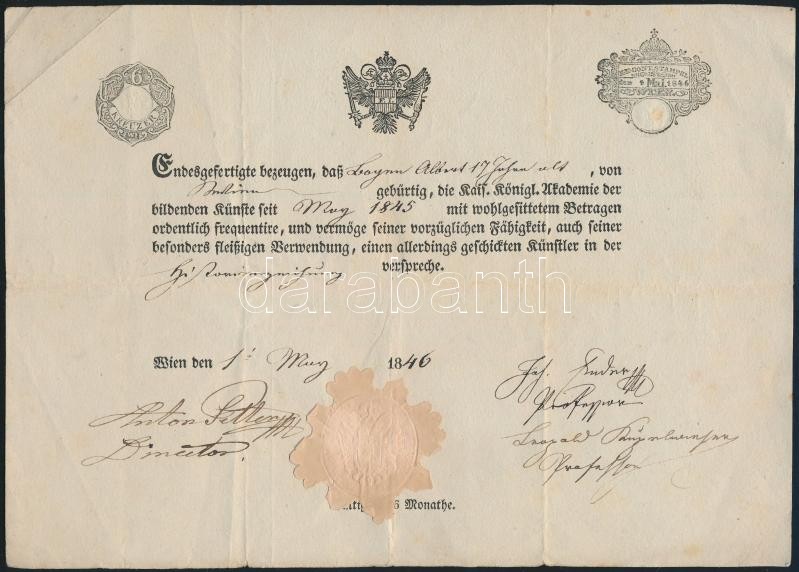 6
KREUZER
WIEN
MAI. 1846
WIEN
Endesgefertigte bezeugen, daß Bogen Albert 17 Jahre alt, von
gebürtig, die Kais. Königl. Akademie der
bildenden Künste seit May 1845 mit wohlgesittetem Betragen
ordentlich frequentire, und vermöge seiner vorzüglichen Fähigkeit, auch seiner
besonders fleißigen Verwendung, einen allerdings geschickten Künstler in der
Historienzeichnung verspreche.
darabanth
Wien den 1t May 1846
Anton Petter
Director.
Jos. Ender
Professor
Leopold Kupelwieser
Professor
6 Monathe.